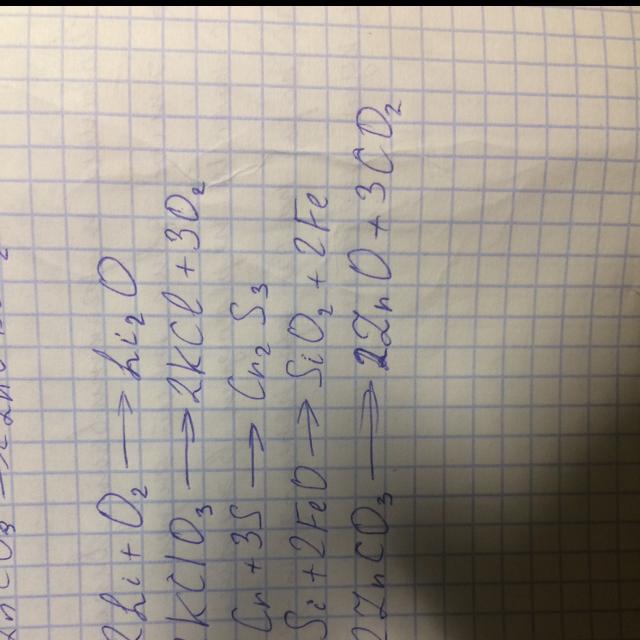 Li + O₂ → Li₂O
KClO₃ → 2KCl + 3O₂
Cr + 3S → Cr₂S₃
Si + 2FeO → SiO₂ + 2Fe
2ZnCO₃ → 2ZnO + 3CO₂